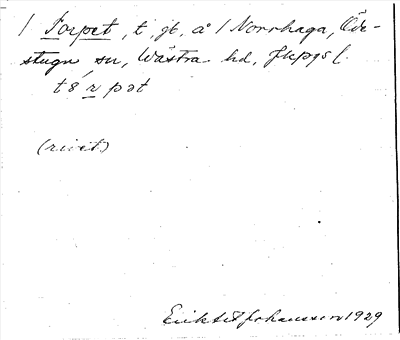 / Torpet, t, jb, å / Norrhaga, Öde-
stugu sn, Wästra hd, Jkpgs l.
t8́rpət
(rivet)
Erikstal Johansson 1929